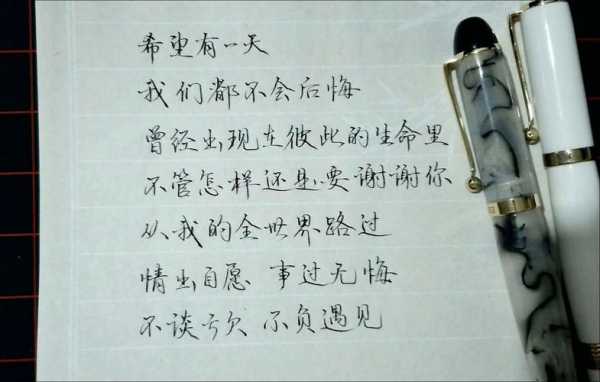 希望有一天
我们都不会后悔
曾经出现在彼此的生命里
不管怎样还是要谢谢你
从我的全世界路过
情出自愿 事过无悔
不谈亏欠 不负遇见